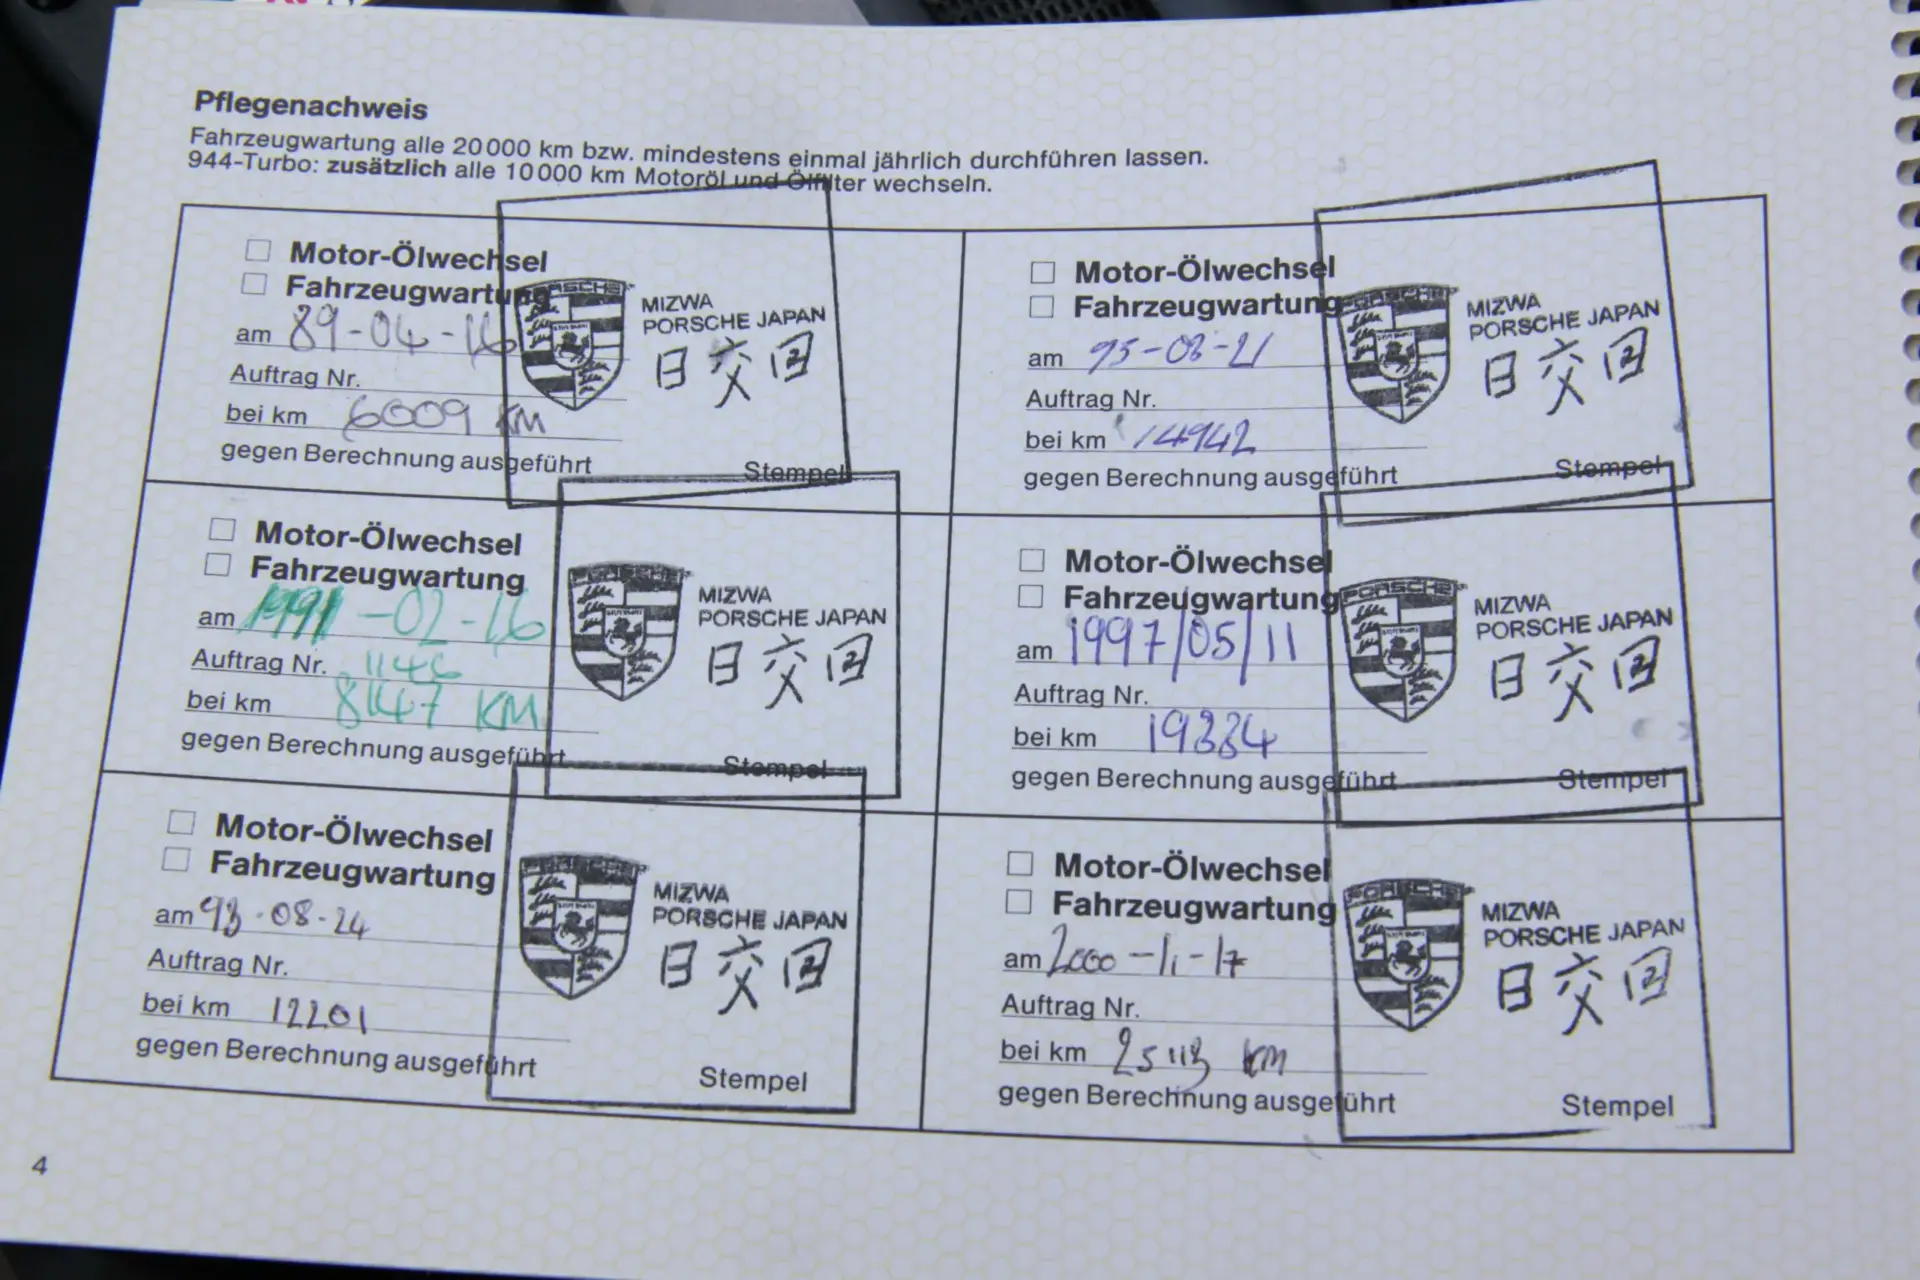 Pflegenachweis
Fahrzeugwartung alle 20 000 km bzw. mindestens einmal jährlich durchführen lassen.
944-Turbo: zusätzlich alle 10 000 km Motoröl und Ölfilter wechseln.
Motor-Ölwechsel
Fahrzeugwartung
am 89-04-16
Auftrag Nr.
bei km 6009 KM
gegen Berechnung ausgeführt
PORSCHE
MIZWA
PORSCHE JAPAN
日 交 回
Stempel
Motor-Ölwechsel
Fahrzeugwartung
am 1991-02-26
Auftrag Nr. 1146
bei km 8147 KM
gegen Berechnung ausgeführt
PORSCHE
MIZWA
PORSCHE JAPAN
日 交 回
Stempel
Motor-Ölwechsel
Fahrzeugwartung
am 93-08-24
Auftrag Nr.
bei km 12201
gegen Berechnung ausgeführt
PORSCHE
MIZWA
PORSCHE JAPAN
日 交 回
Stempel
Motor-Ölwechsel
Fahrzeugwartung
am 95-08-21
Auftrag Nr.
bei km 14942
gegen Berechnung ausgeführt
PORSCHE
MIZWA
PORSCHE JAPAN
日 交 回
Stempel
Motor-Ölwechsel
Fahrzeugwartung
am 1997/05/11
Auftrag Nr.
bei km 19334
gegen Berechnung ausgeführt
PORSCHE
MIZWA
PORSCHE JAPAN
日 交 回
Stempel
Motor-Ölwechsel
Fahrzeugwartung
am 2000-11-17
Auftrag Nr.
bei km 25113 KM
gegen Berechnung ausgeführt
PORSCHE
MIZWA
PORSCHE JAPAN
日 交 回
Stempel
4